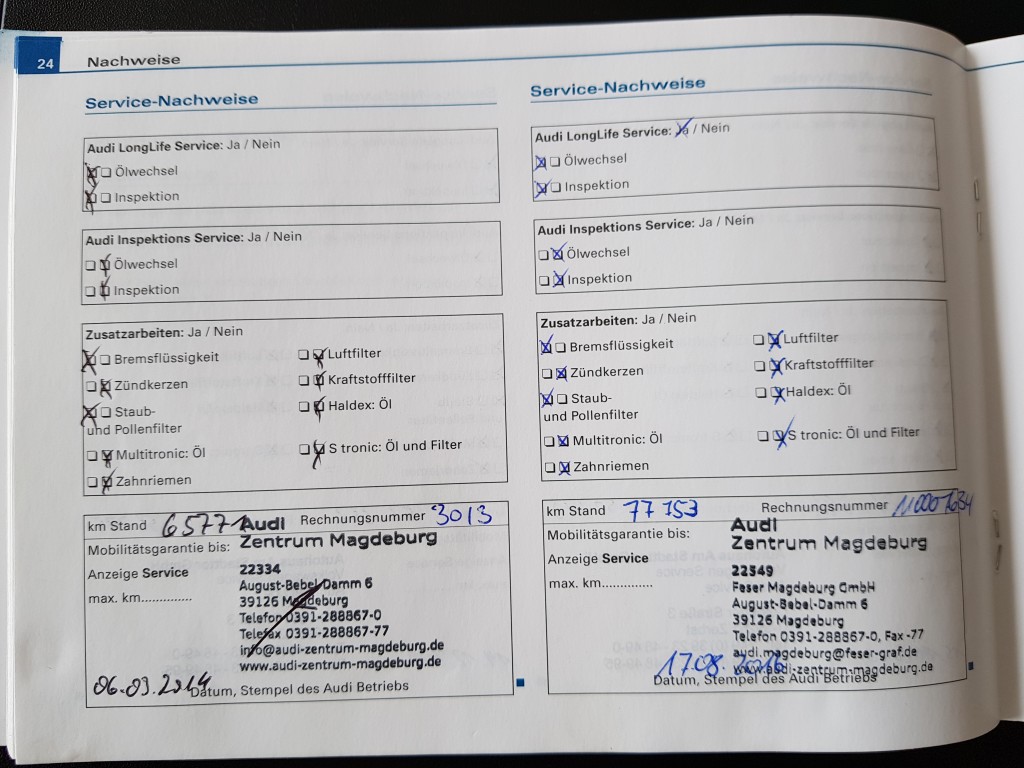 24
Nachweise
Service-Nachweise
Audi LongLife Service: Ja / Nein
Ölwechsel
Inspektion
Audi Inspektions Service: Ja / Nein
Ölwechsel
Inspektion
Zusatzarbeiten: Ja / Nein
Bremsflüssigkeit
Luftfilter
Zündkerzen
Kraftstofffilter
Staub-
und Pollenfilter
Haldex: Öl
Multitronic: Öl
S tronic: Öl und Filter
Zahnriemen
km Stand 65771 Rechnungsnummer 3013
Mobilitätsgarantie bis:
Anzeige Service
max. km..............
Audi
Zentrum Magdeburg
22334
August-Bebel Damm 6
39126 Magdeburg
Telefon 0391-288867-0
Telefax 0391-288867-77
info@audi-zentrum-magdeburg.de
www.audi-zentrum-magdeburg.de
06.03.2014
Datum, Stempel des Audi Betriebs
Service-Nachweise
Audi LongLife Service: Ja / Nein
Ölwechsel
Inspektion
Audi Inspektions Service: Ja / Nein
Ölwechsel
Inspektion
Zusatzarbeiten: Ja / Nein
Bremsflüssigkeit
Luftfilter
Zündkerzen
Kraftstofffilter
Staub-
und Pollenfilter
Haldex: Öl
Multitronic: Öl
S tronic: Öl und Filter
Zahnriemen
km Stand 77 153 Rechnungsnummer
Mobilitätsgarantie bis:
Anzeige Service
max. km..............
Audi
Zentrum Magdeburg
22549
Feser Magdeburg GmbH
August-Bebel-Damm 6
39126 Magdeburg
Telefon 0391-288867-0, Fax -77
audi.magdeburg@feser-graf.de
www.audi-zentrum-magdeburg.de
17.08.2016
Datum, Stempel des Audi Betriebs